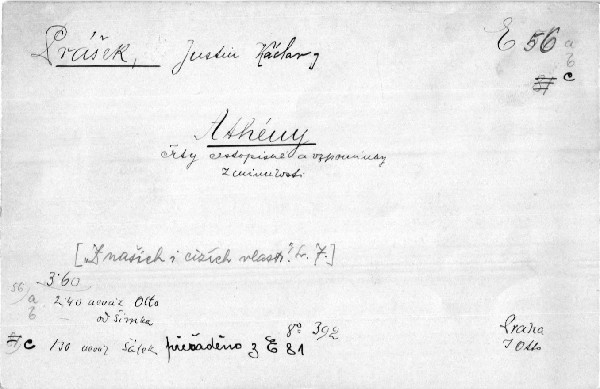 Prášek, Justin Václav E 56 a
b
c
Athény
črty cestopisné a vzpomínky
z minulosti
["Z našich i cizích vlastí". č. 7.]
56/ 3·60
a 2·40 Otto
b od Šimka
8° 392 Praha
c 130 přeřaděno z E 81 J Otto